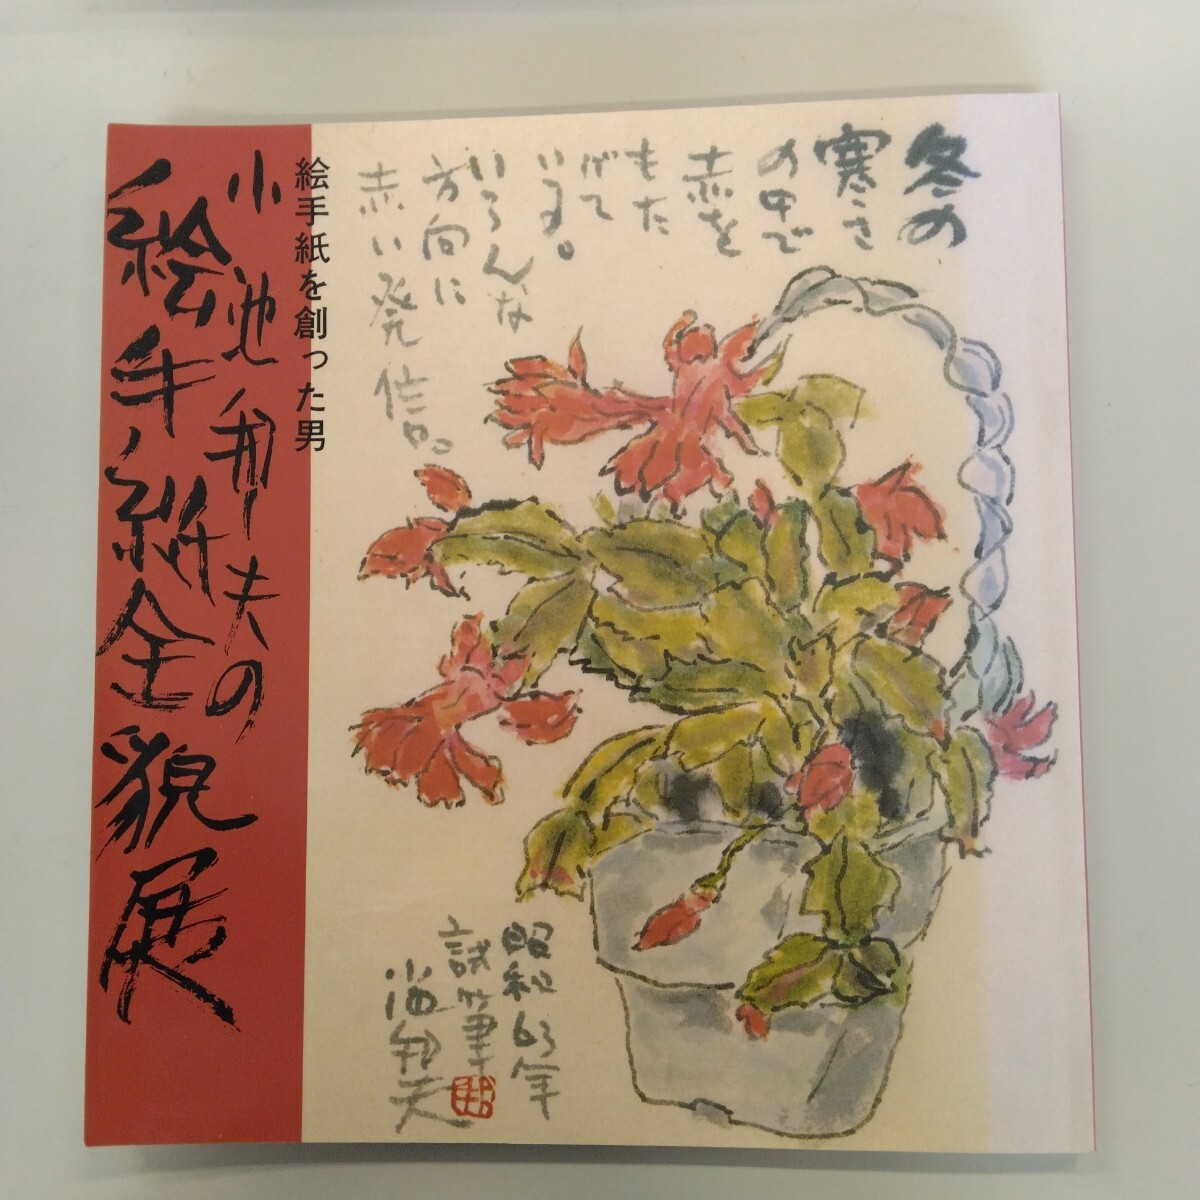 冬の
寒さ
の中で
赤を
もた
げて
いる。
いろんな
方向に
赤い発信。
絵手紙を創った男
小池邦夫の
絵手紙全貌展
昭和63年
試筆
小池邦夫
邦